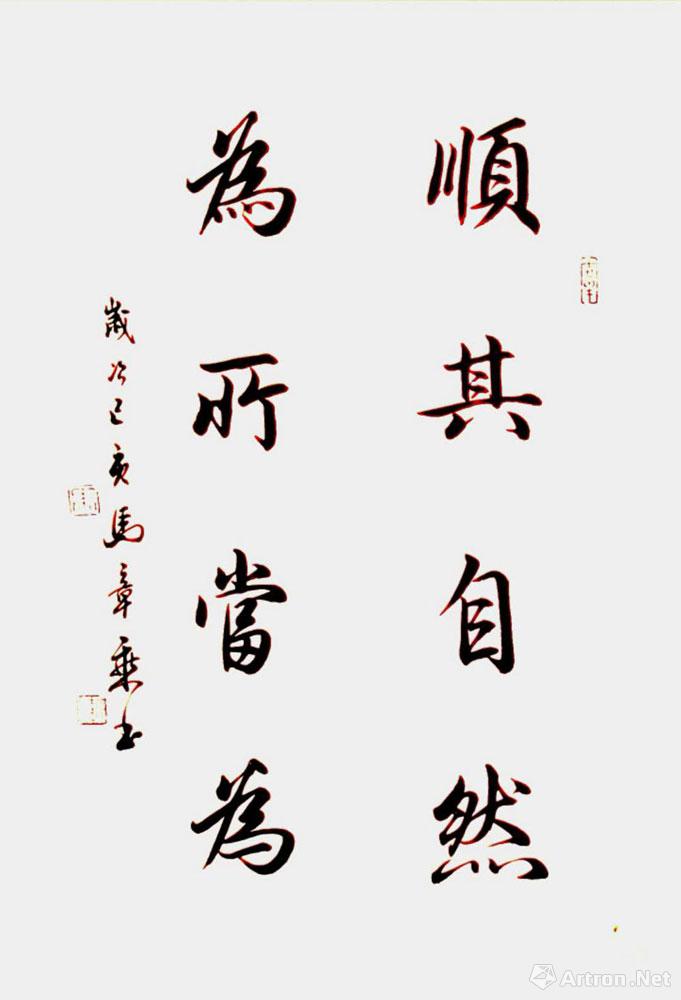 順其自然
為所當為
歲次己亥馬章乘書
Artron.Net